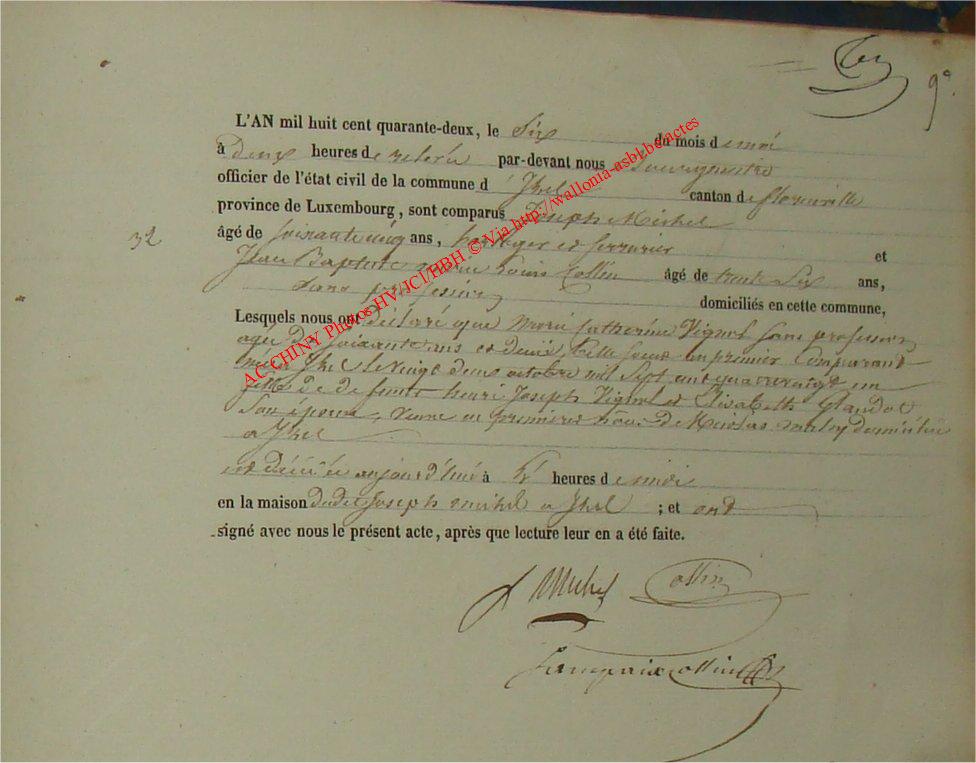 9e
L'AN mil huit cent quarante-deux, le Six du mois de mai
à Deux heures de relevée par-devant nous Bourgmestre
officier de l'état civil de la commune d' Izel canton de florenville
province de Luxembourg, sont comparus Joseph Michel
32
âgé de soixante cinq ans, horloger et serrurier et
Jean Baptiste Louis Collin âgé de trente Six ans,
Sans profession domiciliés en cette commune,
Lesquels nous ont Déclaré que Marie Catherine Vignol Sans profession
agée De Soixante ans et demi, belle Soeur au premier Comparant
née à Izel le vingt deux octobre mil Sept cent quatrevingt un
fille de defunts henri Joseph Vignol et Elisabeth
Son épouse, veuve en premieres De Nicolas domiciliée
a Izel
est décédée aujourd'hui à heures de midi
en la maison Dudit Joseph michel a Izel ; et ont
signé avec nous le présent acte, après que lecture leur en a été faite.
J Michel Collin
AC-CHINY Photos HV/JCI/HBH © Via http://wallonia-asbl.be/actes